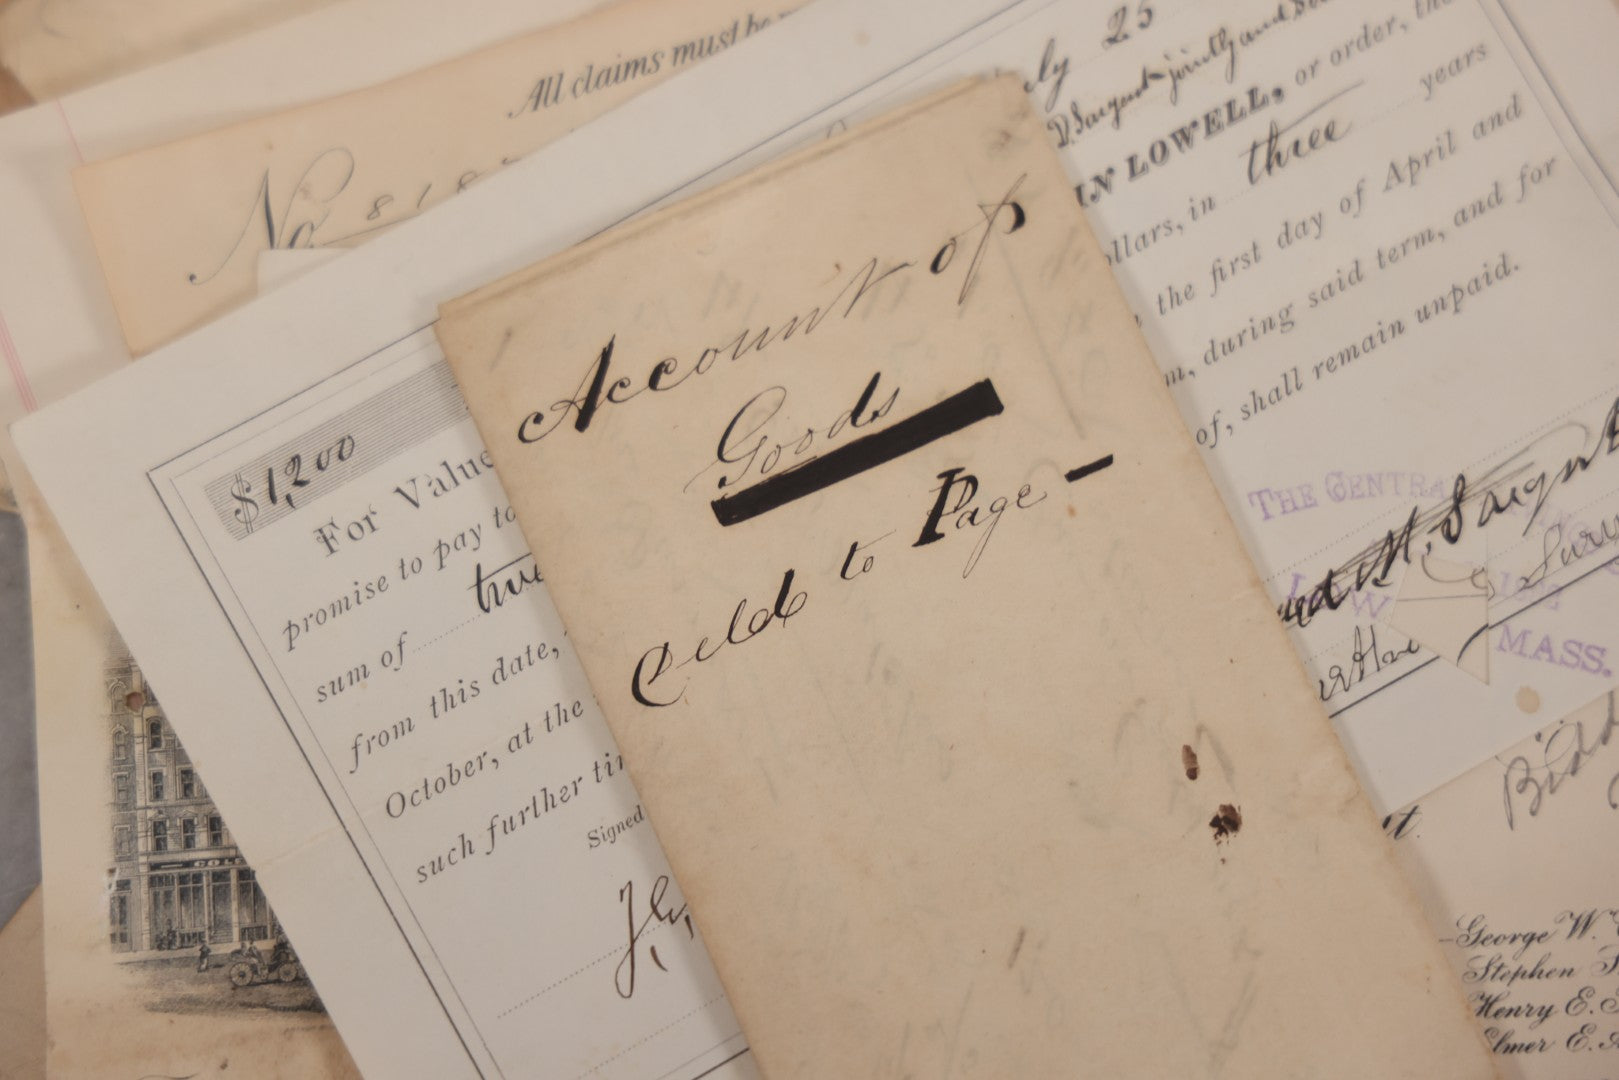 All claims must be
No. 818
ly 25
Sargent jointly and
IN LOWELL, or order, the
ollars, in three years
the first day of April and
m, during said term, and for
of, shall remain unpaid.
THE CENTRA
M. Sargent
MASS.
Account of
Goods
to Page –
$1,200
For Value
promise to pay to
sum of
from this date,
October, at the
such further tim
Signed
COLE
George W.
Stephen
Henry E.
Elmer E.